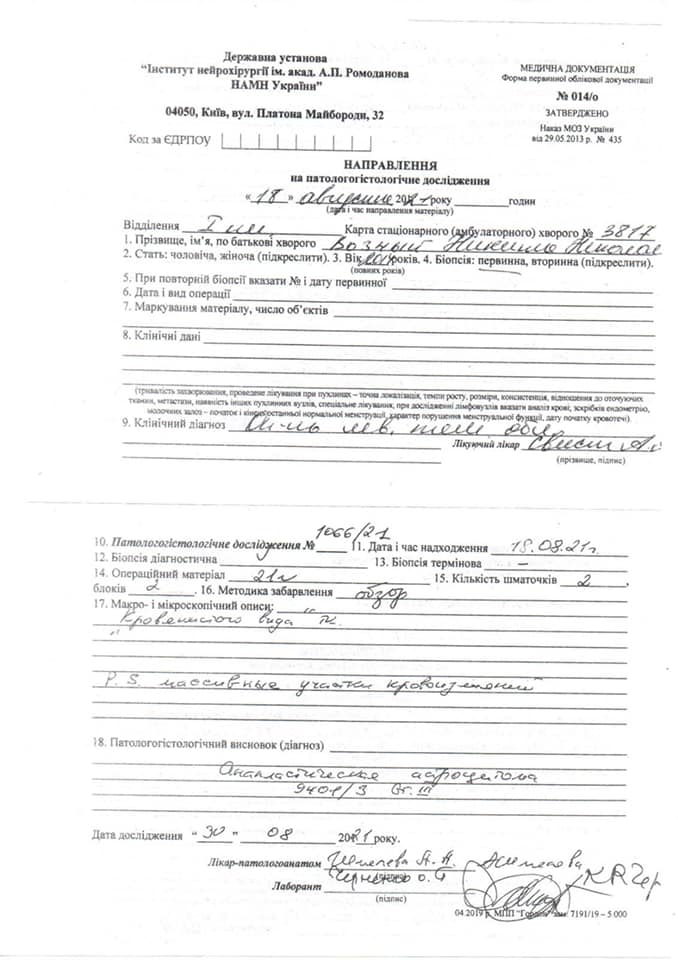 Державна установа
"Інститут нейрохірургії ім. акад. А.П. Ромоданова
НАМН України"
04050, Київ, вул. Платона Майбороди, 32
Код за ЄДРПОУ
МЕДИЧНА ДОКУМЕНТАЦІЯ
Форма первинної облікової документації
№ 014/о
ЗАТВЕРДЖЕНО
Наказ МОЗ України
від 29.05.2013 р. № 435
НАПРАВЛЕННЯ
на патологогістологічне дослідження
« 18 » августа 2021 року годин
(дата і час направлення матеріалу)
Відділення Карта стаціонарного (амбулаторного) хворого № 3817
1. Прізвище, ім'я, по батькові хворого Возный Никита Николае
2. Стать: чоловіча, жіноча (підкреслити). 3. Вік років. 4. Біопсія: первинна, вторинна (підкреслити).
(повних років)
5. При повторній біопсії вказати № і дату первинної
6. Дата і вид операції
7. Маркування матеріалу, число об'єктів
8. Клінічні дані
(тривалість захворювання, проведене лікування при пухлинах – точна локалізація, темпи росту, розміри, консистенція, відношення до оточуючих
тканин, метастази, наявність інших пухлинних вузлів, спеціальне лікування, при дослідженні лімфовузлів вказати аналіз крові; зскрібків ендометрію,
молочних залоз – початок і кінець останньої нормальної менструації, характер порушення менструальної функції, дату початку кровотечі).
9. Клінічний діагноз лев. тем. обл.
Лікуючий лікар
(прізвище, підпис)
10. Патологогістологічне дослідження № 1066/21 11. Дата і час надходження 18.08.21г.
12. Біопсія діагностична 13. Біопсія термінова –
14. Операційний матеріал 21г 15. Кількість шматочків 2,
блоків 2. 16. Методика забарвлення обзор
17. Макро- і мікроскопічний описи:
Кровянистого вида тк.
P.S. массивные участки кровоизлияний
18. Патологогістологічний висновок (діагноз)
Анапластическая астроцитома
9401/3 Gr. III
Дата дослідження "30" 08 2021 року.
Лікар-патологоанатом Шмелева А.А.
Лаборант
(підпис)
04.2019 р. МПП "Гордон" зам. 7191/19 – 5 000